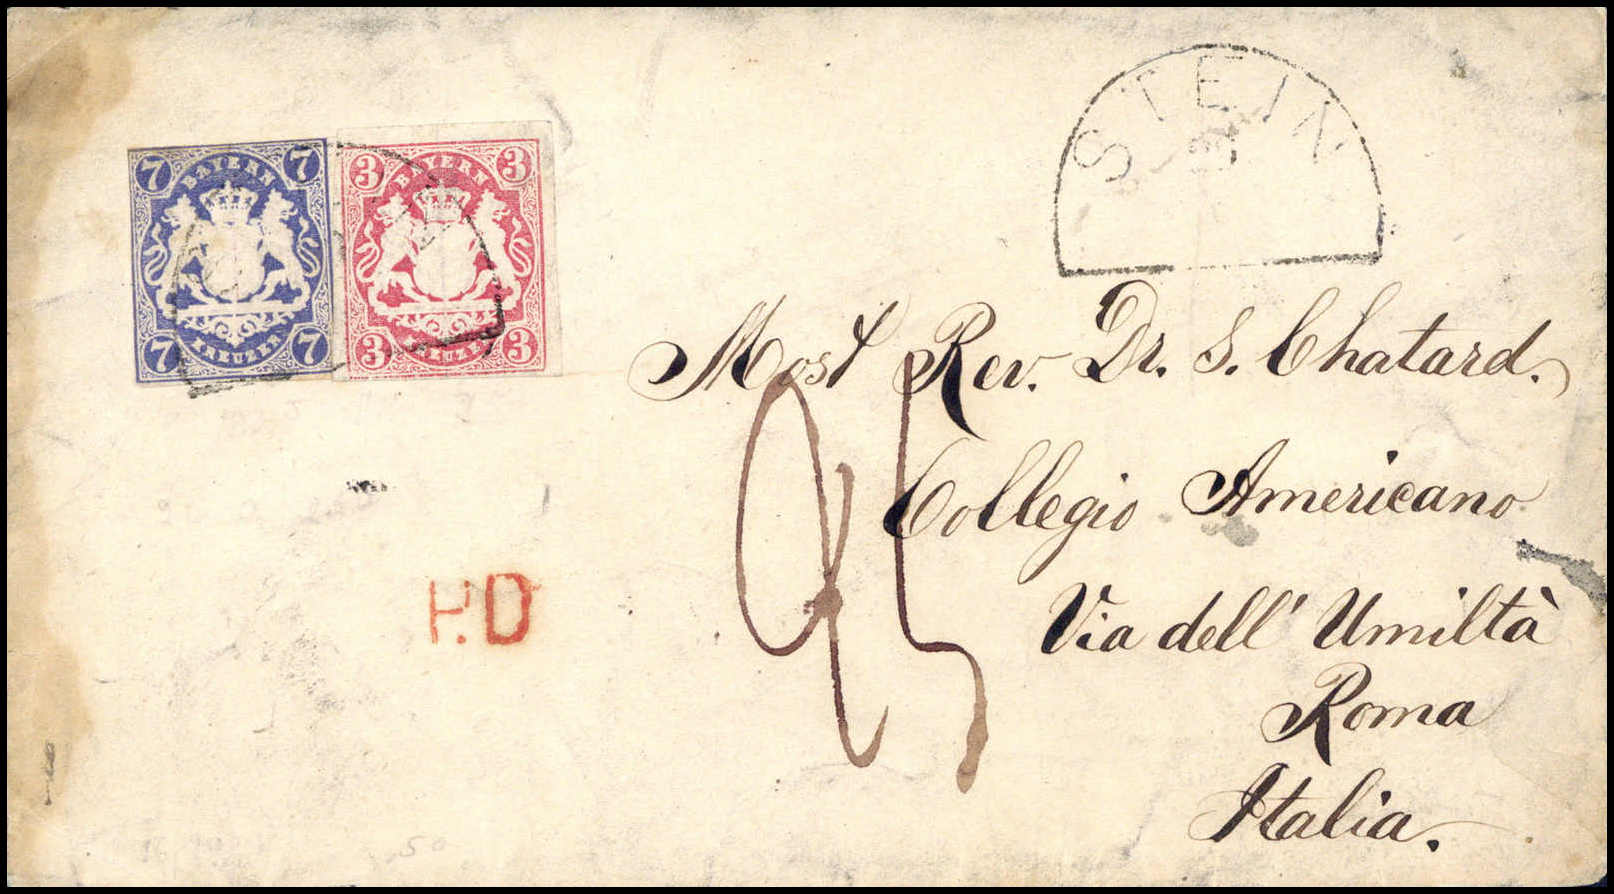 7 7
BAYERN
7 7
KREUZER
3 3
BAYERN
3 3
KREUZER
STEIN
Most Rev. Dr. S. Chatard.
Collegio Americano
Via dell' Umiltà
Roma
Italia.
P.D